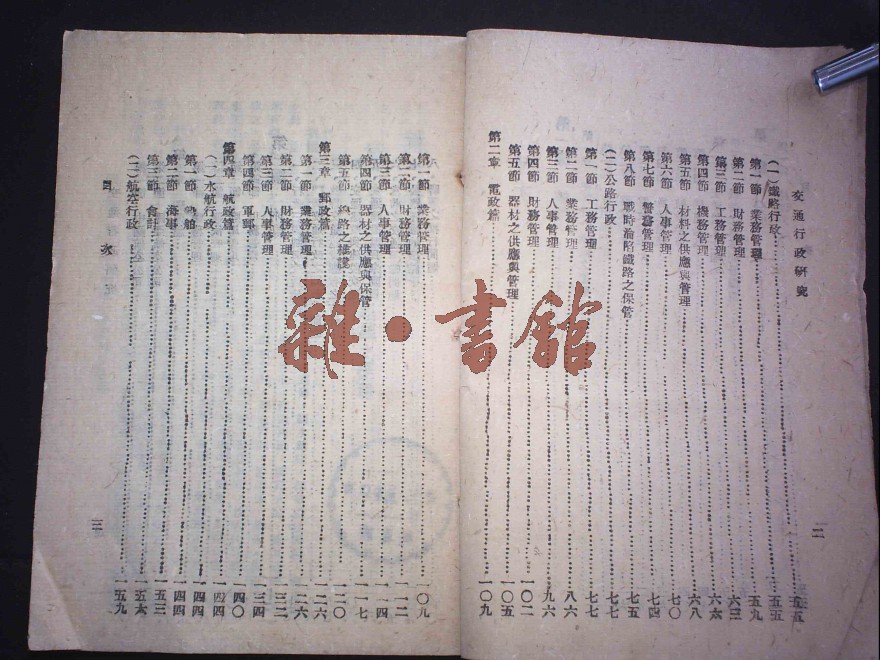 交通行政研究
二
(一)鐵路行政 五五
第一節 業務管理 五五
第二節 財務管理 五九
第三節 工務管理 六三
第四節 機務管理 六六
第五節 材料之供應與管理 六八
第六節 人事管理 七〇
第七節 警務管理 七四
第八節 戰時淪陷鐵路之保管 七五
(二)公路行政 七七
第一節 工務管理 七七
第二節 業務管理 八六
第三節 人事管理 九六
第四節 財務管理 一〇二
第五節 器材之供應與管理 一〇五
第二章 電政篇 一〇九
第一節 業務管理 一〇九
第二節 財務管理 一一二
第三節 人事管理 一一四
第四節 器材之供應與保管 一一七
第五節 線路之維護 一二〇
第三章 郵政篇 一二六
第一節 業務管理 一二六
第二節 財務管理 一三二
第三節 人事管理 一三四
第四節 軍郵 一四〇
第四章 航政篇 一四四
(一)水航行政 一四四
第一節 船舶 一四四
第二節 海事 一四四
第三節 會計 一五三
(二)航空行政 一五六
一五九
三
雜·書館